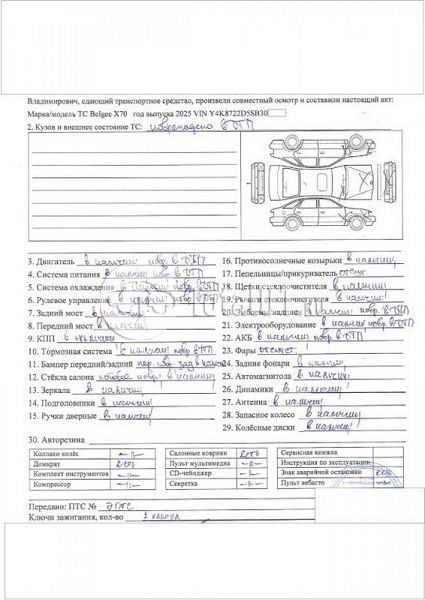 Владимирович, сдающий транспортное средство, произвели совместный осмотр и составили настоящий акт:
Марка/модель ТС Belgee X70 год выпуска 2025 VIN Y4K8722D5SB30
2. Кузов и внешнее состояние ТС: повреждено в ДТП
3. Двигатель в наличии повр. в ДТП
4. Система питания в наличии повр. в ДТП
5. Система охлаждения в наличии повр. в ДТП
6. Рулевое управление в наличии повр. в ДТП
7. Задний мост в наличии
8. Передний мост в наличии
9. КПП в наличии
10. Тормозная система в наличии повр. в ДТП
11. Бампер передний/задний пер. повр. зад. в налич
12. Стёкла салона лобовое повр. в наличии
13. Зеркала в наличии
14. Подголовники в наличии
15. Ручки дверные в наличии
16. Противосолнечные козырьки в наличии
17. Пепельницы/прикуриватель отсут
18. Щетки стеклоочистителя в наличии
19. стеклоочистителя в наличии
20. Эмблемы в наличии повр. в ДТП
21. Электрооборудование в наличии повр. в ДТП
22. АКБ в наличии повр. в ДТП
23. Фары отсутст.
24. Задние фонари в наличии
25. Автомагнитола в наличии
26. Динамики в наличии
27. Антенна в наличии
28. Запасное колесо в наличии
29. Колёсные диски в наличии
30. Авторезина
Колпаки колёс -"- Салонные коврики есть Сервисная книжка
Домкрат есть Пульт мультимедиа -"- Инструкция по эксплуатации
Комплект инструментов -"- CD-чейнджер -"- Знак аварийной остановки есть
Компрессор -"- Секретка -"- Пульт вебасто
Передано: ПТС № ЭПТС
Ключи зажигания, кол-во 1 ключ